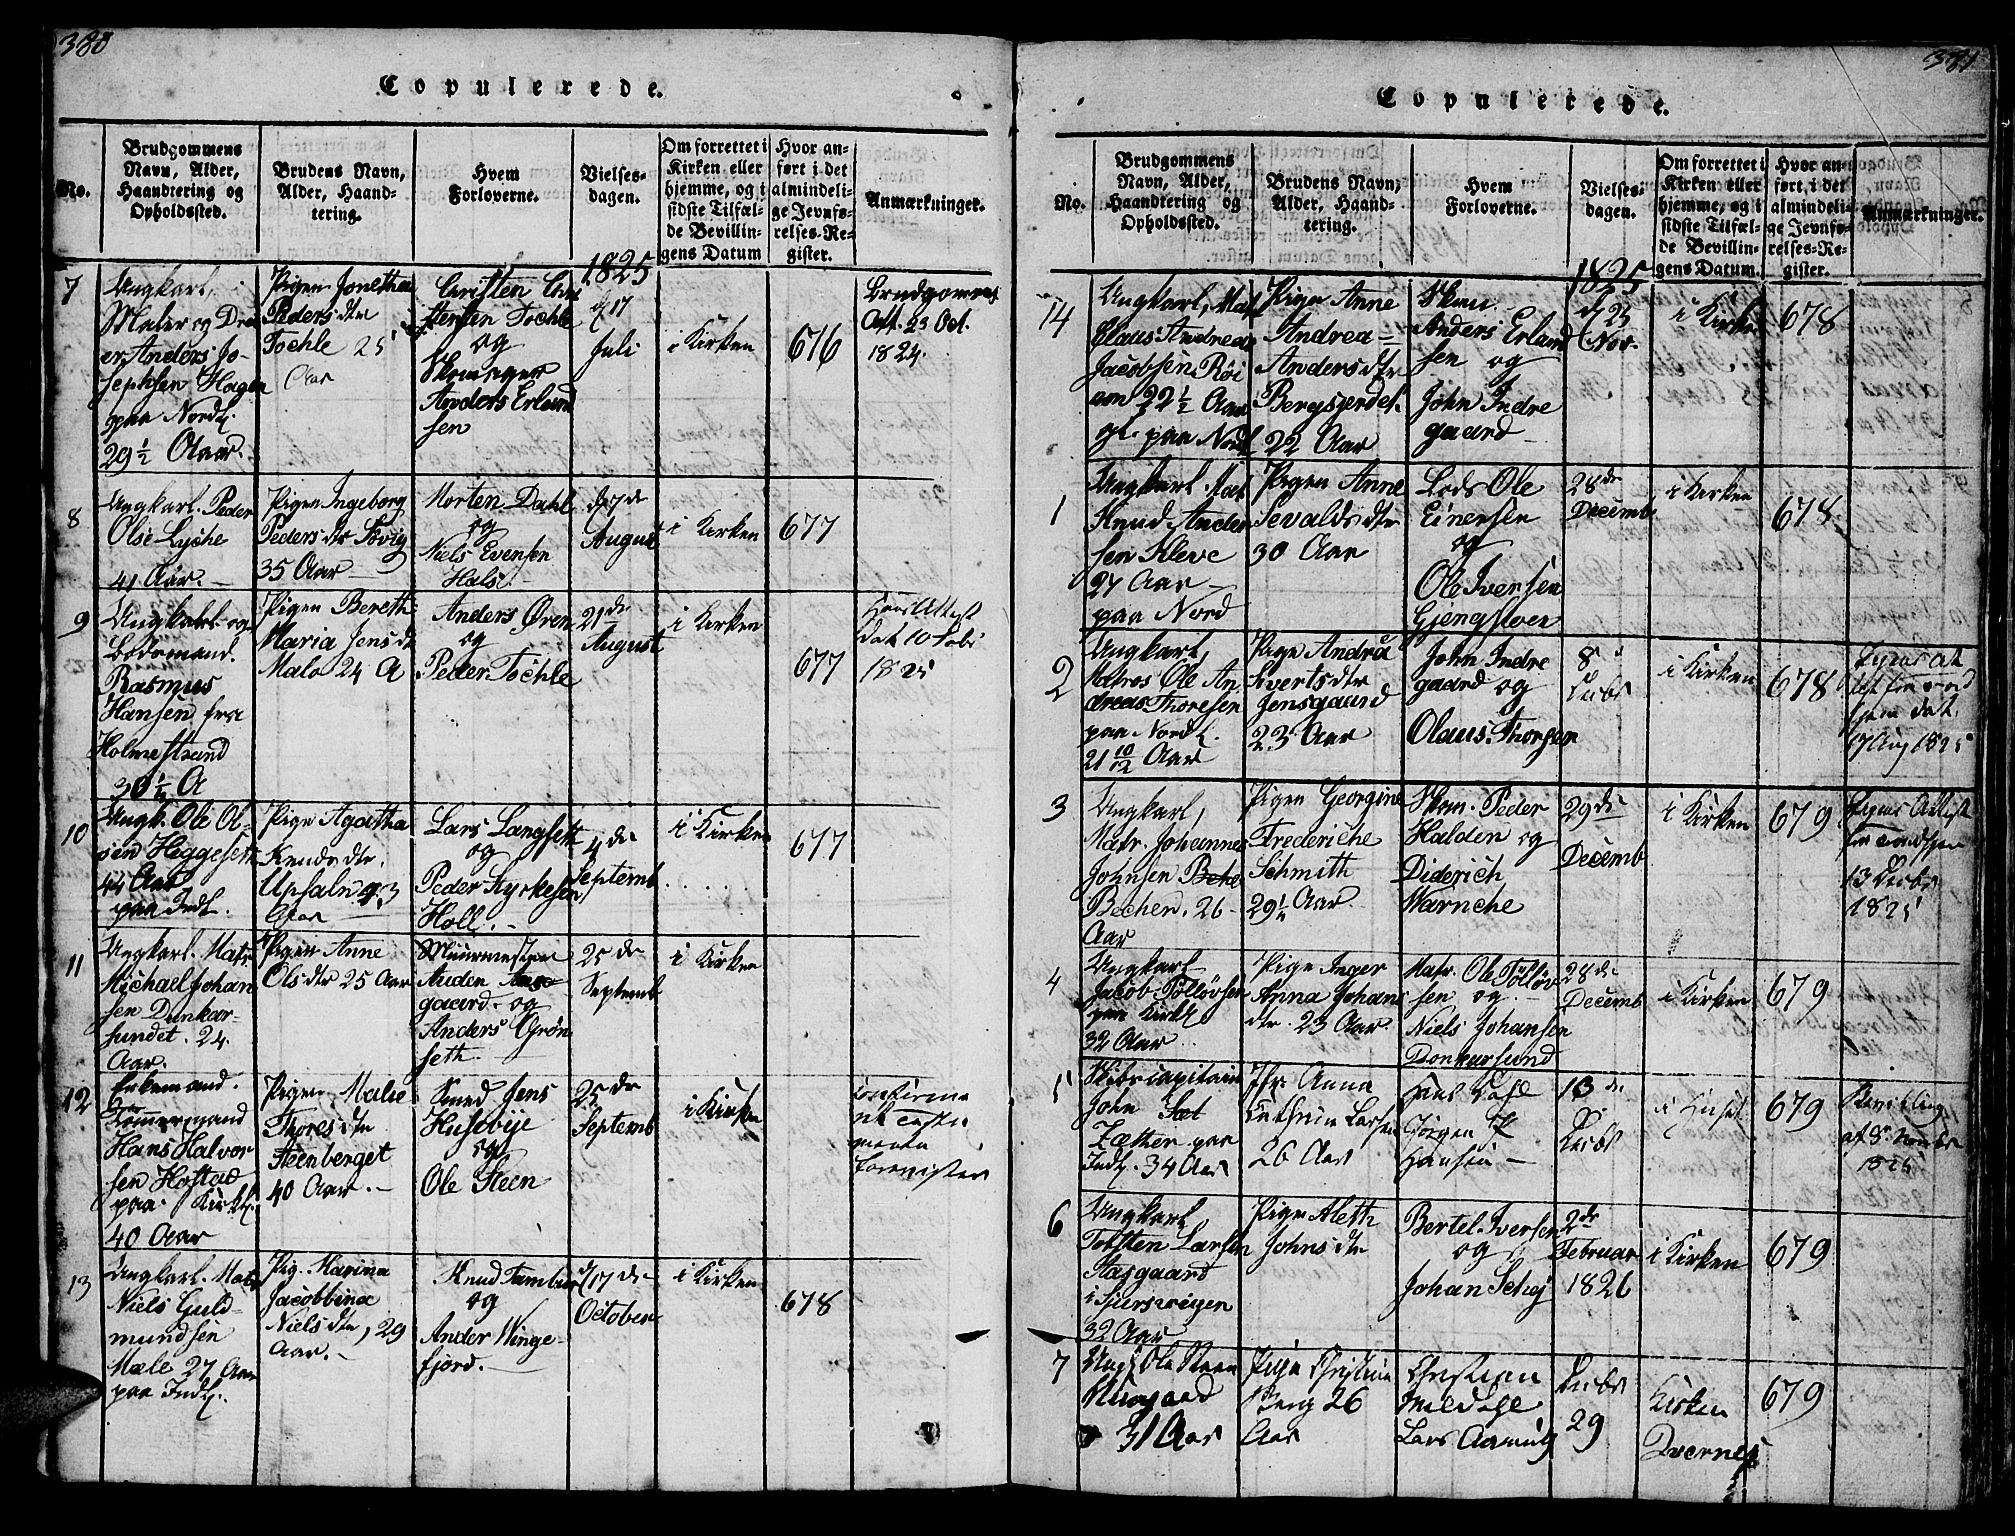 380
Copulerede.
No.
Brudgommens Navn, Alder, Haandtering og Opholdssted.
Brudens Navn, Alder, Haandtering.
Hvem Forloverne.
Vielsesdagen.
Om forrettet i Kirken eller hjemme, og i sidste Tilfælde Bevillingens Datum
Hvor anført i det almindelige Jevnførelses-Register.
Anmærkninger.
1825
7
Ungkarl,
Maler og
Anders Jo-
sephsen Hagen
paa Nordl.
29½ Aar.
Pigen Jonetha
Peders dtr
Tochle 25
Aar
Christen
Tochle
og
Skomager
Anders Erland
sen
17
Juli
i Kirken
676
Brudgomens
Att. 23 Oct.
1824.
8
Ungkarl. Peder
Olse Lyche
41 Aar.
Pigen Ingeborg
Peders dtr
35 Aar
Morten Dahl
og
Niels Evensen
Hals.
d. 7de
August
i Kirken
677
9
Ungkarl og
Bodsmand.
Rasmus
Hansen fra
Holmestrand
30½ A
Pigen Bereth
Maria Jens dtr
Malo 24 A
Anders Ören
og
Peder Tochle
21de
August
i Kirken
677
Hans Attest
dat 10
1825
10
Ungk. Ole Ol-
sen Heggeseth
44 Aar
paa Indl.
Pige Agatha
Knuds dtr.
Upsaln 43
Aar
Lars Langseth
og
Peder
Holl.
4de
Septemb
i Kirken
677
11
Ungkarl. Matr.
Michael Johan
sen Dunkar-
sundet. 24.
Aar.
Pigen Anne
Ols dtr 25 Aar
Muurmester
Auden Aas-
gaard og
Anders Grön
seth.
25de
Septemb
i Kirken
12
Enkemand.
Tömmermand
Hans Halvor
sen Hostad
paa Kirkl.
40 Aar
Pigen Malie
Thores dtr
Steenberget
40 Aar.
Smed Jens
Husebye
og
Ole Steen
25de
Septemb
i Kirken
13
Ungkarl. Matr
Niels Guld-
mundsen
Mæle 27 Aar
paa Indl.
Pig. Marina
Jacobbina
Niels dtr, 29
Aar.
Knud Tambur
og
Ander Winge-
fjord.
17de
October
i Kirken
678
381
Copulerede.
No.
Brudgommens Navn, Alder, Haandtering og Opholdssted.
Brudens Navn, Alder, Haandtering.
Hvem Forloverne.
Vielsesdagen.
Om forrettet i Kirken eller hjemme, og i sidste Tilfælde Bevillingens Datum.
Hvor anført, i det almindelige Jevnførelses-Register.
Anmærkninger.
1825
14
Ungkarl, Mat
Claus Andreas
Jacobsen Röi
em 22½ Aar
gl. paa Nordl
Pige Anne
Andrea
Anders dtr
Bergsgerdet.
22 Aar
Skom.
Anders Erland
sen og
John Indre
gaard
d. 23
Nov.
i Kirken
678
1
Ungkarl. Mat
Knud Ander
sen Kleve
27 Aar
paa Nord
Pigen Anne
Sevalds dtr
30 Aar
Lods Ole
Einersen
og
Ole Iversen
Gjengstoen
28de
Decemb
i Kirken
678
2
Ungkarl,
Matros Ole An
dreas Thoresen
paa Nordl.
21 10/12 Aar
Pige Andrea
Siverts dtr
Jensgaard
23 Aar
John Indre
gaard og
Olaus Thorsen
8
Decbr
i Kirken
678
dat.
17 Aug 1825
3
Ungkarl,
Matr. Johannes
Johnsen
Bechen. 26
Aar
Pigen Georgine
Frederiche
Schmith
29½ Aar
Skom. Peder
Halden og
Diderich
Warnche
29de
Decemb
i Kirken
679
Pigens Attest
13 Decbr
1825
4
Ungkarl
Jacob Tölløvsen
paa Kirkl
32 Aar
Pige Inger
Anna Johans
dtr. 23 Aar.
Matr. Ole Tölløv
sen og
Niels Johansen
Donkarsund
28de
Decemb
i Kirken
679
5
Skibscapitain
John Sæt
Zæther paa
Indl. 34 Aar
Jfr. Anna
Cathrin Larsen
26 Aar
Hans Dahl
Jörgen
Hansen
13de
Decbr
i Huset
679
Bevilling
af 8 Novbr
1825
6
Ungkarl,
Torsten Larsen
Aasgaard
i
32 Aar
Pige Aleth
Johns dtr
Bertel Iversen
og
Johan Schej
2de
Februar
1826
i Kirken
679
7
Ungk Ole Steen
31 Aar
Pige Christine
Berg 26
Aar
Christian
Lars
Decbr
29
Kirken
Qvernes
679